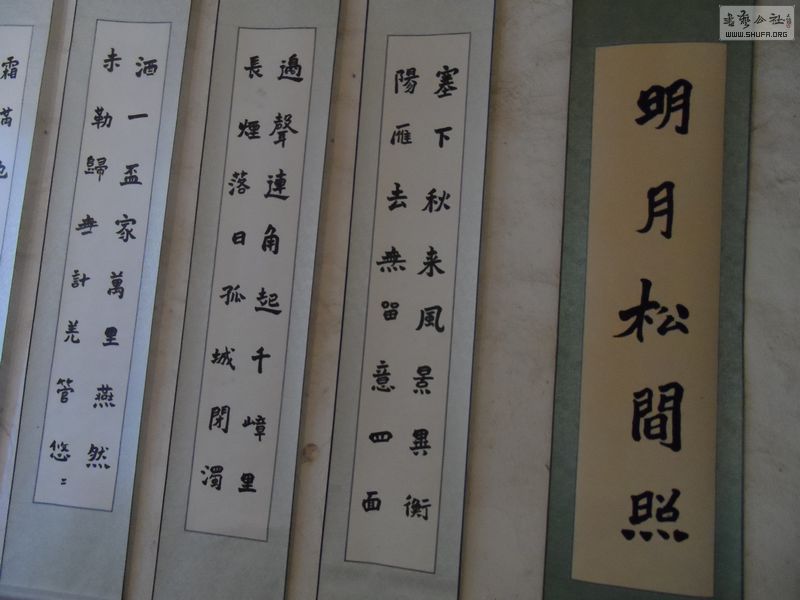 書藝公社
WWW.SHUFA.ORG
明月松間照
塞下秋来風景異衡
陽雁去無留意四面
邊聲連角起千嶂里
長煙落日孤城閉濁
酒一盃家萬里燕然
未勒歸無計羌管悠〻
霜滿地